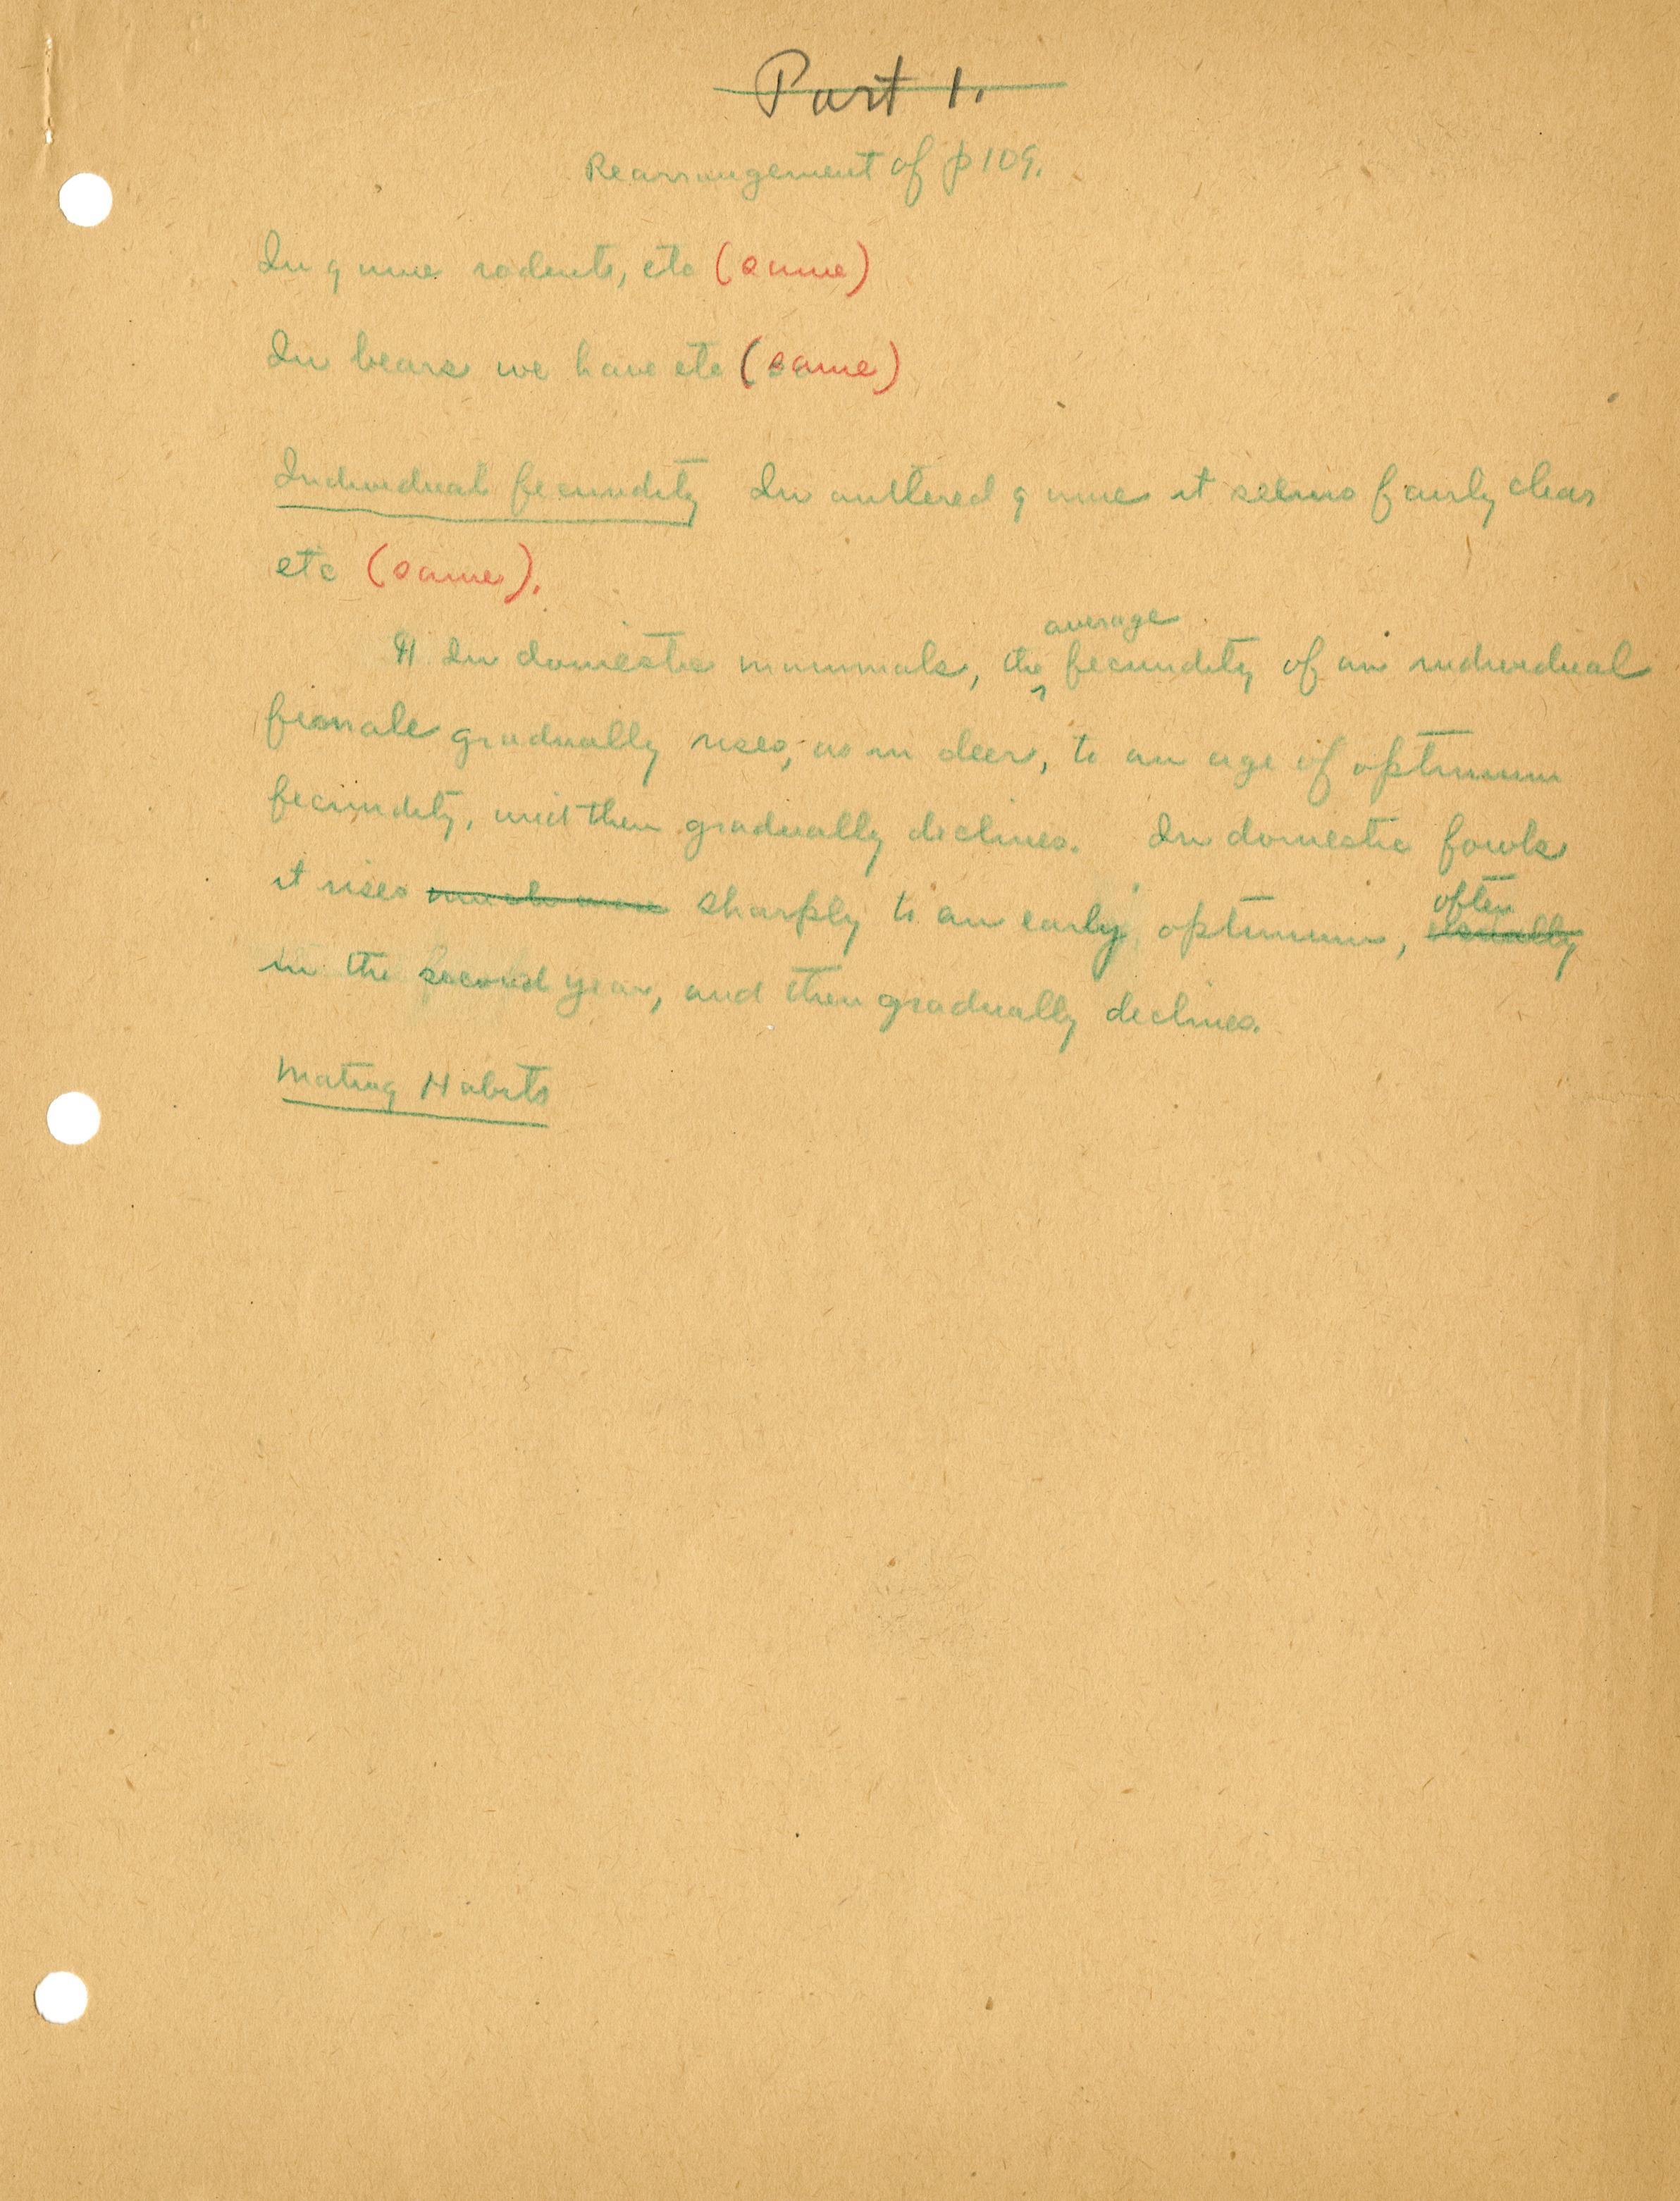 Part 1.
Rearrangement of p 109.
In game rodents, etc (same)
In bears we have etc (same)
Individual fecundity In antlered game it seems fairly clear
etc (same).
average
¶ In domestic mammals, the ‸ fecundity of an individual
female gradually rises, as in deer, to an age of optimum
fecundity, and then gradually declines. In domestic fowls
often
it rises much more sharply to an early optimum, usually
in the second year, and then gradually declines.
Mating Habits